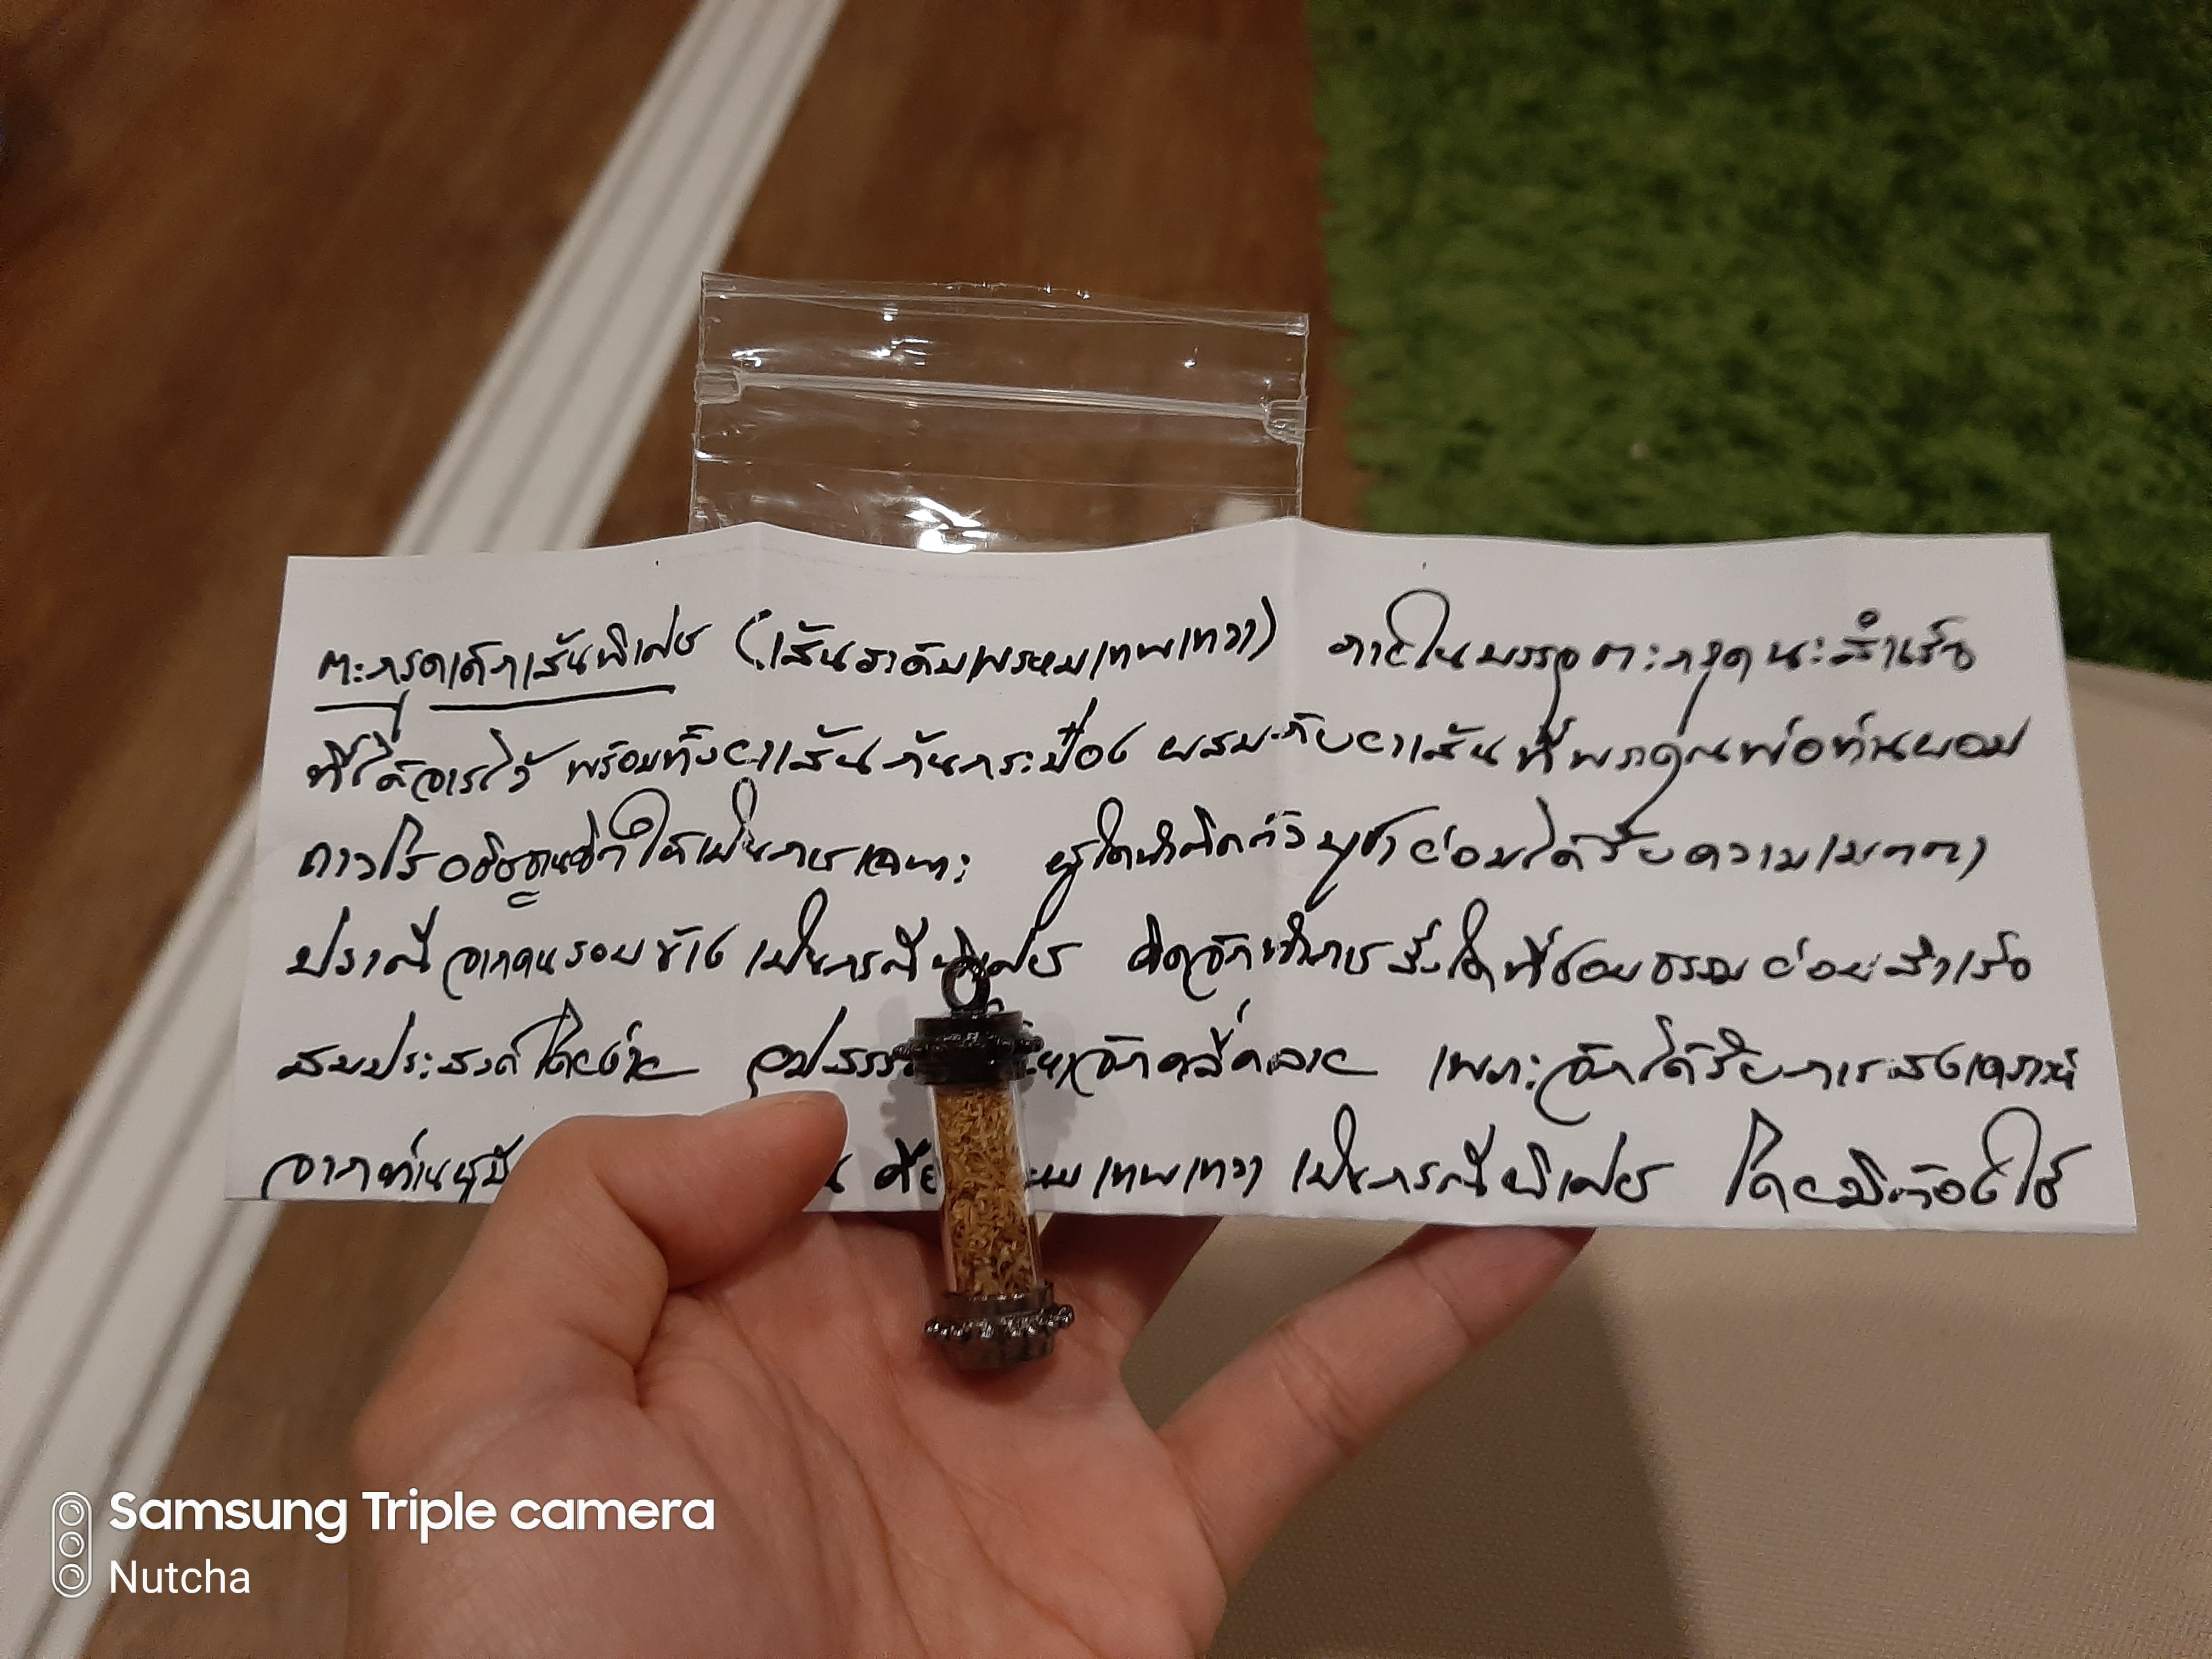 ตะกรุดเด็กเส้นพิเศษ (เส้นระดับพรหมเทพเทวา) ภายในบรรจุตะกรุดนะสำเร็จ
ที่ได้จารไว้ พร้อมทั้งยาเส้นก้นกระป๋อง ผสมกับยาเส้นที่พระคุณพ่อท่านผอม
ถาวโร อธิษฐานจิตให้เป็นการเฉพาะ ผู้ใดนำติดตัวบูชาย่อมได้รับความเมตตา
ปราณี จากคนรอบข้าง เป็นกรณีพิเศษ คิดจักทำการสิ่งใดที่ชอบธรรมย่อมสำเร็จ
สมประสงค์โดยง่าย จักคลี่คลาย เพราะจักได้รับการสงเคราะห์
จากท่านผู้มี เทพเทวา เป็นกรณีพิเศษ โดยมิต้องใช้
Samsung Triple camera
Nutcha